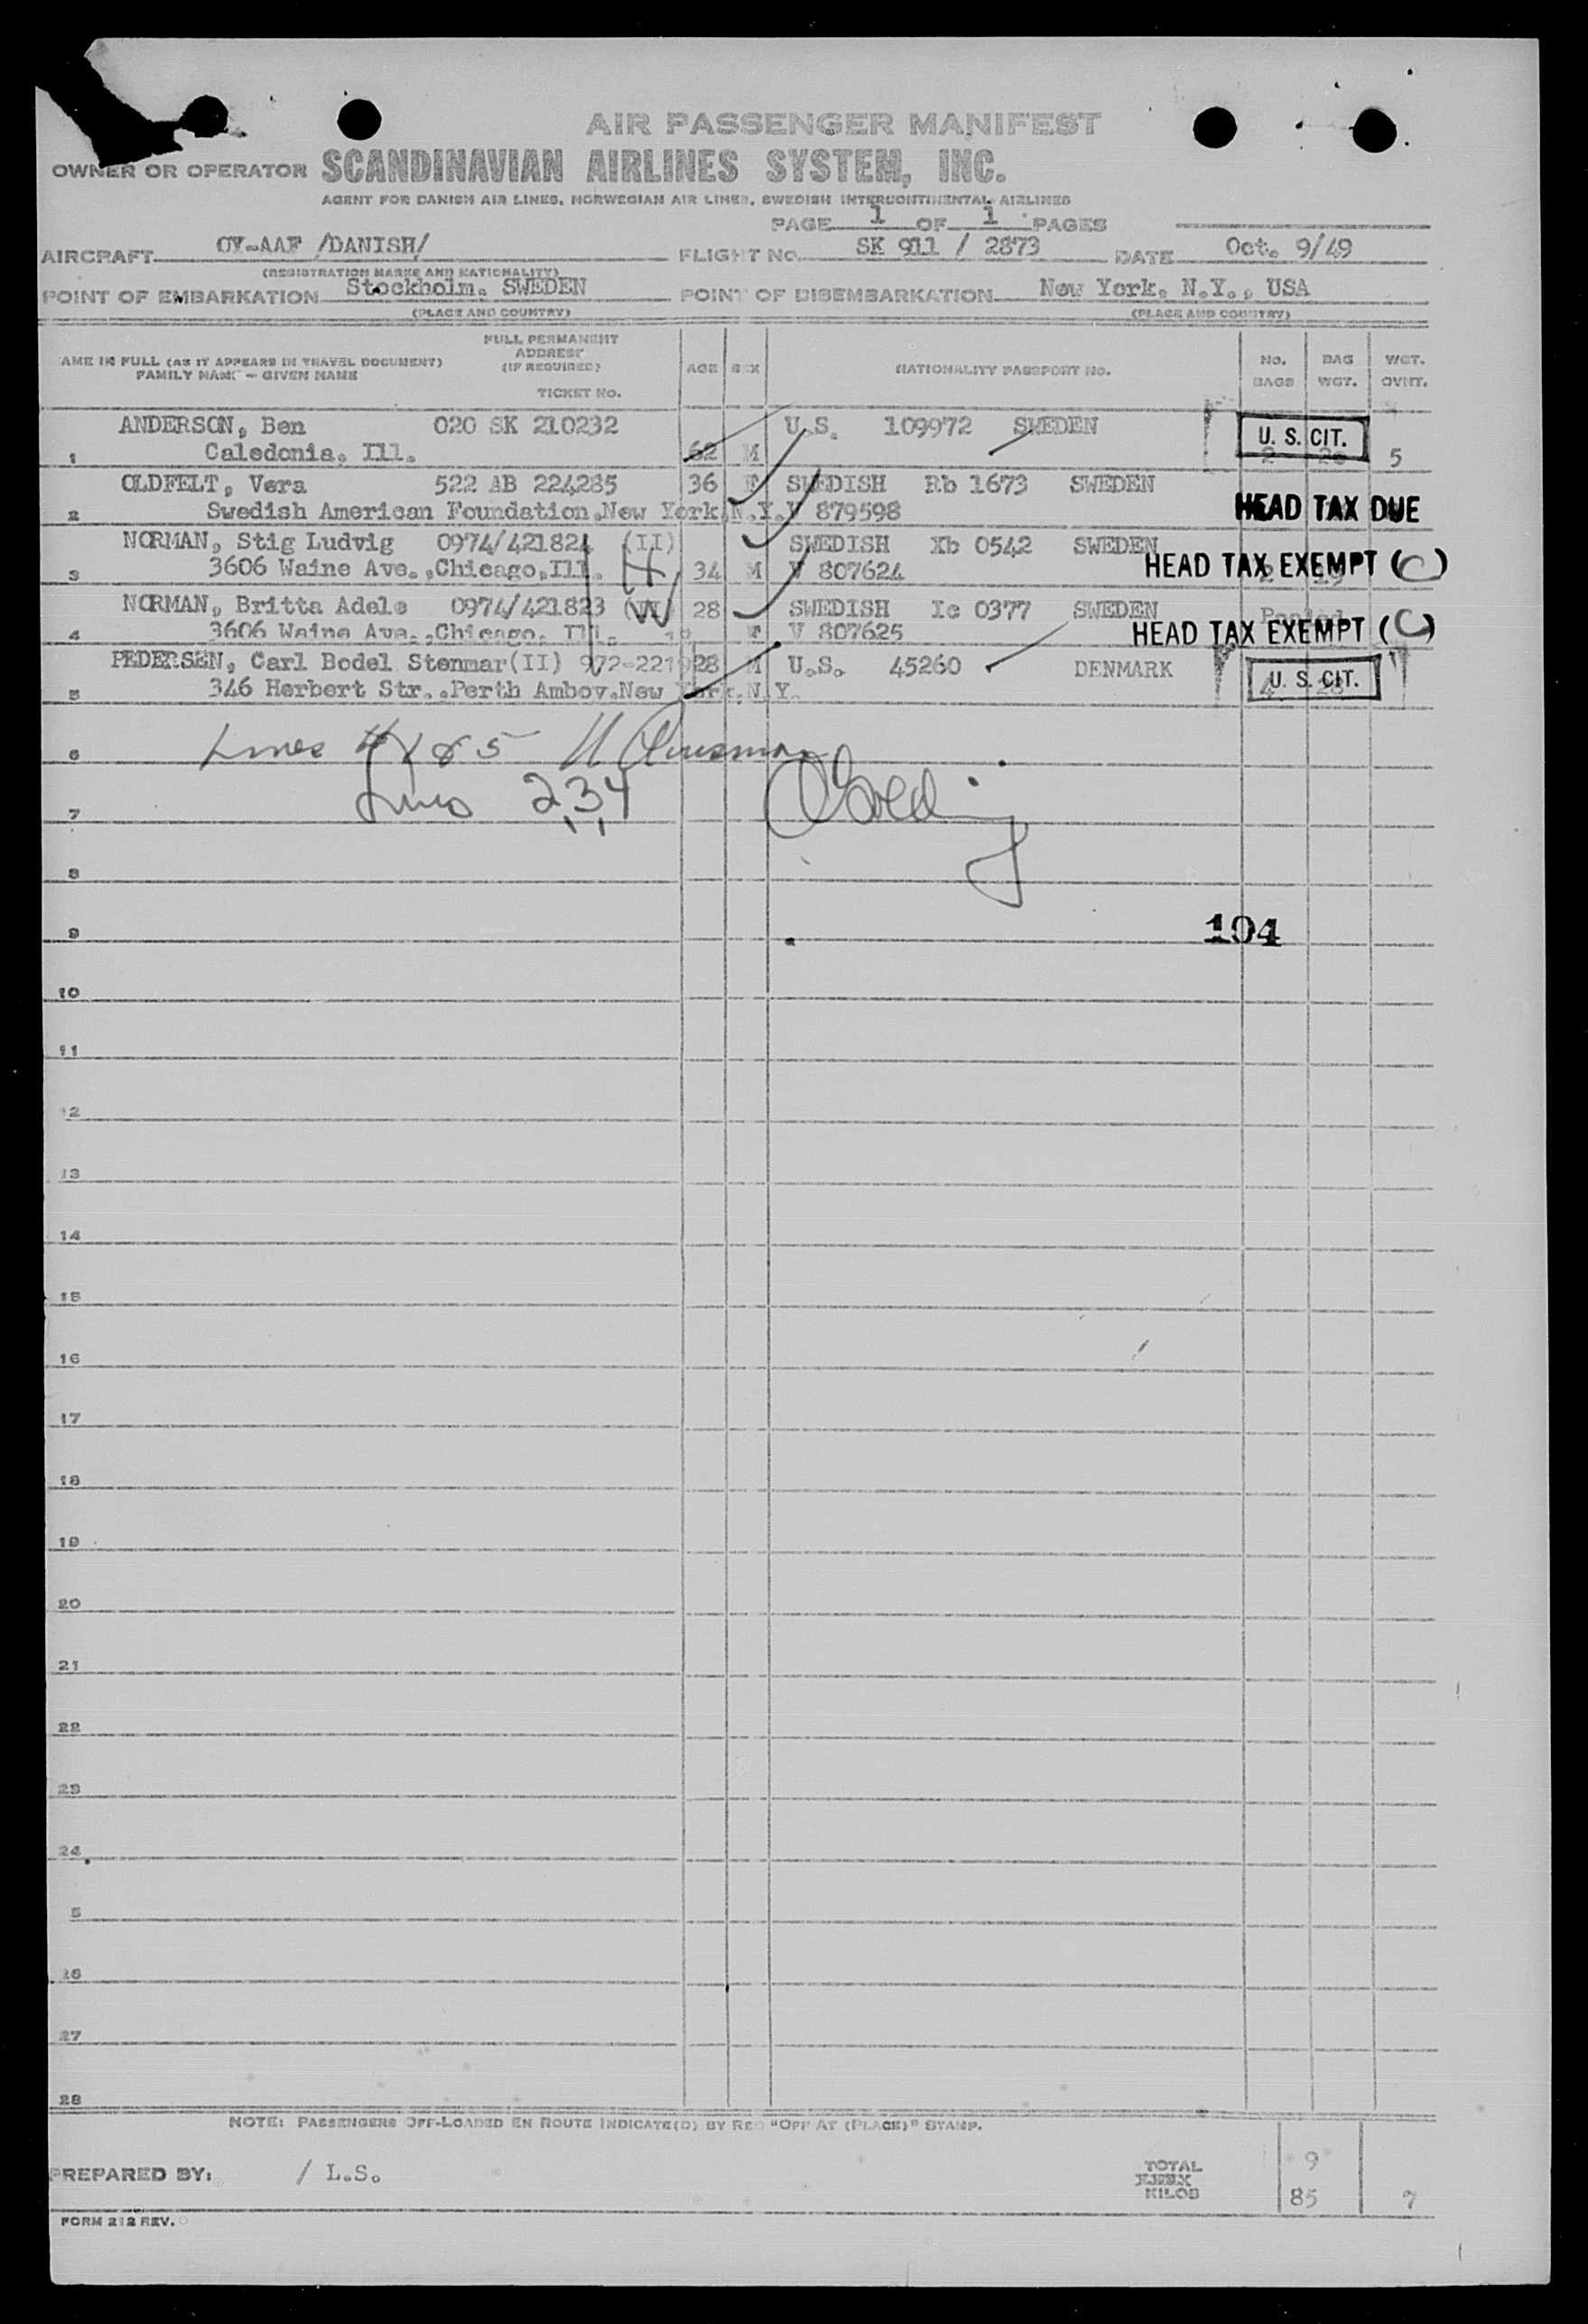 AIR PASSENGER MANIFEST
OWNER OR OPERATOR SCANDINAVIAN AIRLINES SYSTEM, INC.
AGENT FOR DANISH AIR LINES, NORWEGIAN AIR LINES, SWEDISH INTERCONTINENTAL AIRLINES
PAGE 1 OF 1 PAGES
AIRCRAFT OY-AAF /DANISH/ FLIGHT NO. SK 911 / 2873 DATE Oct. 9/49
(REGISTRATION MARKS AND NATIONALITY)
POINT OF EMBARKATION Stockholm. SWEDEN POINT OF DISEMBARKATION New York. N.Y., USA
(PLACE AND COUNTRY) (PLACE AND COUNTRY)
AME IN FULL (AS IT APPEARS IN TRAVEL DOCUMENT) FAMILY NAME - GIVEN NAME
FULL PERMANENT ADDRESS (IF REQUIRED) TICKET NO.
AGE SEX NATIONALITY PASSPORT NO. NO. BAGS BAG WGT. WGT. OVHT.
ANDERSON, Ben 020 SK 210232 U.S. 109972 SWEDEN U. S. CIT.
1 Caledonia. Ill. 62 M 2 5
OLDFELT, Vera 522 AB 224285 36 F SWEDISH Rb 1673 SWEDEN
2 Swedish American Foundation.New York.N.Y. V 879598 HEAD TAX DUE
NORMAN, Stig Ludvig 0974/421824 (II) SWEDISH Xb 0542 SWEDEN
3 3606 Waine Ave.,Chicago.Ill. 34 M V 807624 HEAD TAX EXEMPT (C)
NORMAN, Britta Adele 0974/421823 (II) 28 SWEDISH Ic 0377 SWEDEN Pooled
4 3606 Waine Ave.,Chicago. Ill. F V 807625 HEAD TAX EXEMPT (C)
PEDERSEN, Carl Bodel Stenmar(II) 972-221 28 M U.S. 45260 DENMARK
5 346 Herbert Str..Perth Amboy.New York.N.Y. U. S. CIT.
6 Lines 5
7 Lines 2,3,4
8
9 194
10
11
12
13
14
15
16
17
18
19
20
21
22
23
24
5
26
27
28
NOTE: PASSENGERS OFF-LOADED EN ROUTE INDICATE(D) BY RED "OFF AT (PLACE)" STAMP.
PREPARED BY: / L.S. TOTAL 9
KILOS 85 7
FORM 212 REV.